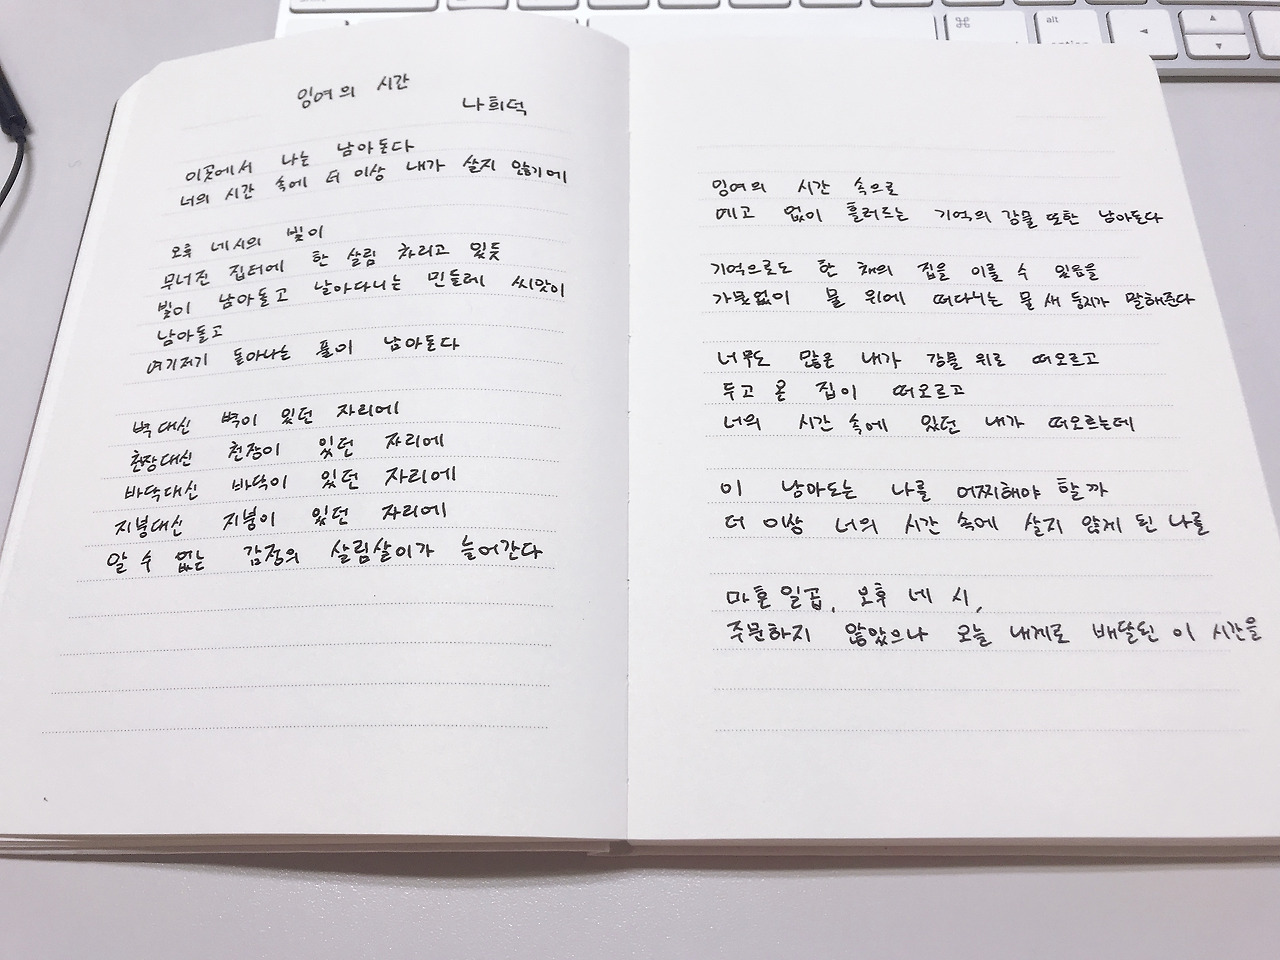 잉여의 시간
나희덕
이곳에서 나는 남아돈다
너의 시간 속에 더 이상 내가 살지 않기에
오후 네시의 빛이
무너진 집터에 한 살림 차리고 있듯
빛이 남아돌고 날아다니는 민들레 씨앗이
남아돌고
여기저기 돋아나는 풀이 남아돈다
벽대신 벽이 있던 자리에
천장대신 천장이 있던 자리에
바닥대신 바닥이 있던 자리에
지붕대신 지붕이 있던 자리에
알 수 없는 감정의 살림살이가 늘어간다
잉여의 시간 속으로
예고 없이 흘러드는 기억의 강물 또한 남아돈다
기억으로도 한 채의 집을 이룰 수 있음을
가뭇없이 물 위에 떠다니는 물새 둥지가 말해준다
너무도 많은 내가 강물 위로 떠오르고
두고 온 집이 떠오르고
너의 시간 속에 있던 내가 떠오르는데
이 남아도는 나를 어찌해야 할까
더 이상 너의 시간 속에 살지 않게 된 나를
마흔일곱, 오후 네 시,
주문하지 않았으나 오늘 내게로 배달된 이 시간을
⌘
alt
option
◄
▲
▼